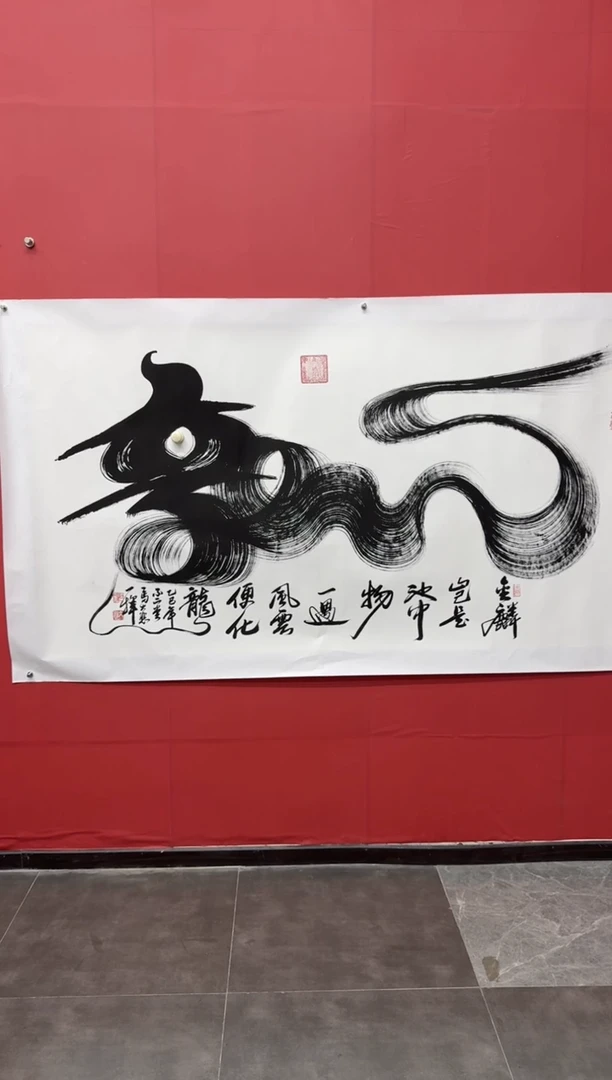 金麟
豈是
池中
物
一遇
風雲
便化
龍
乙巳年